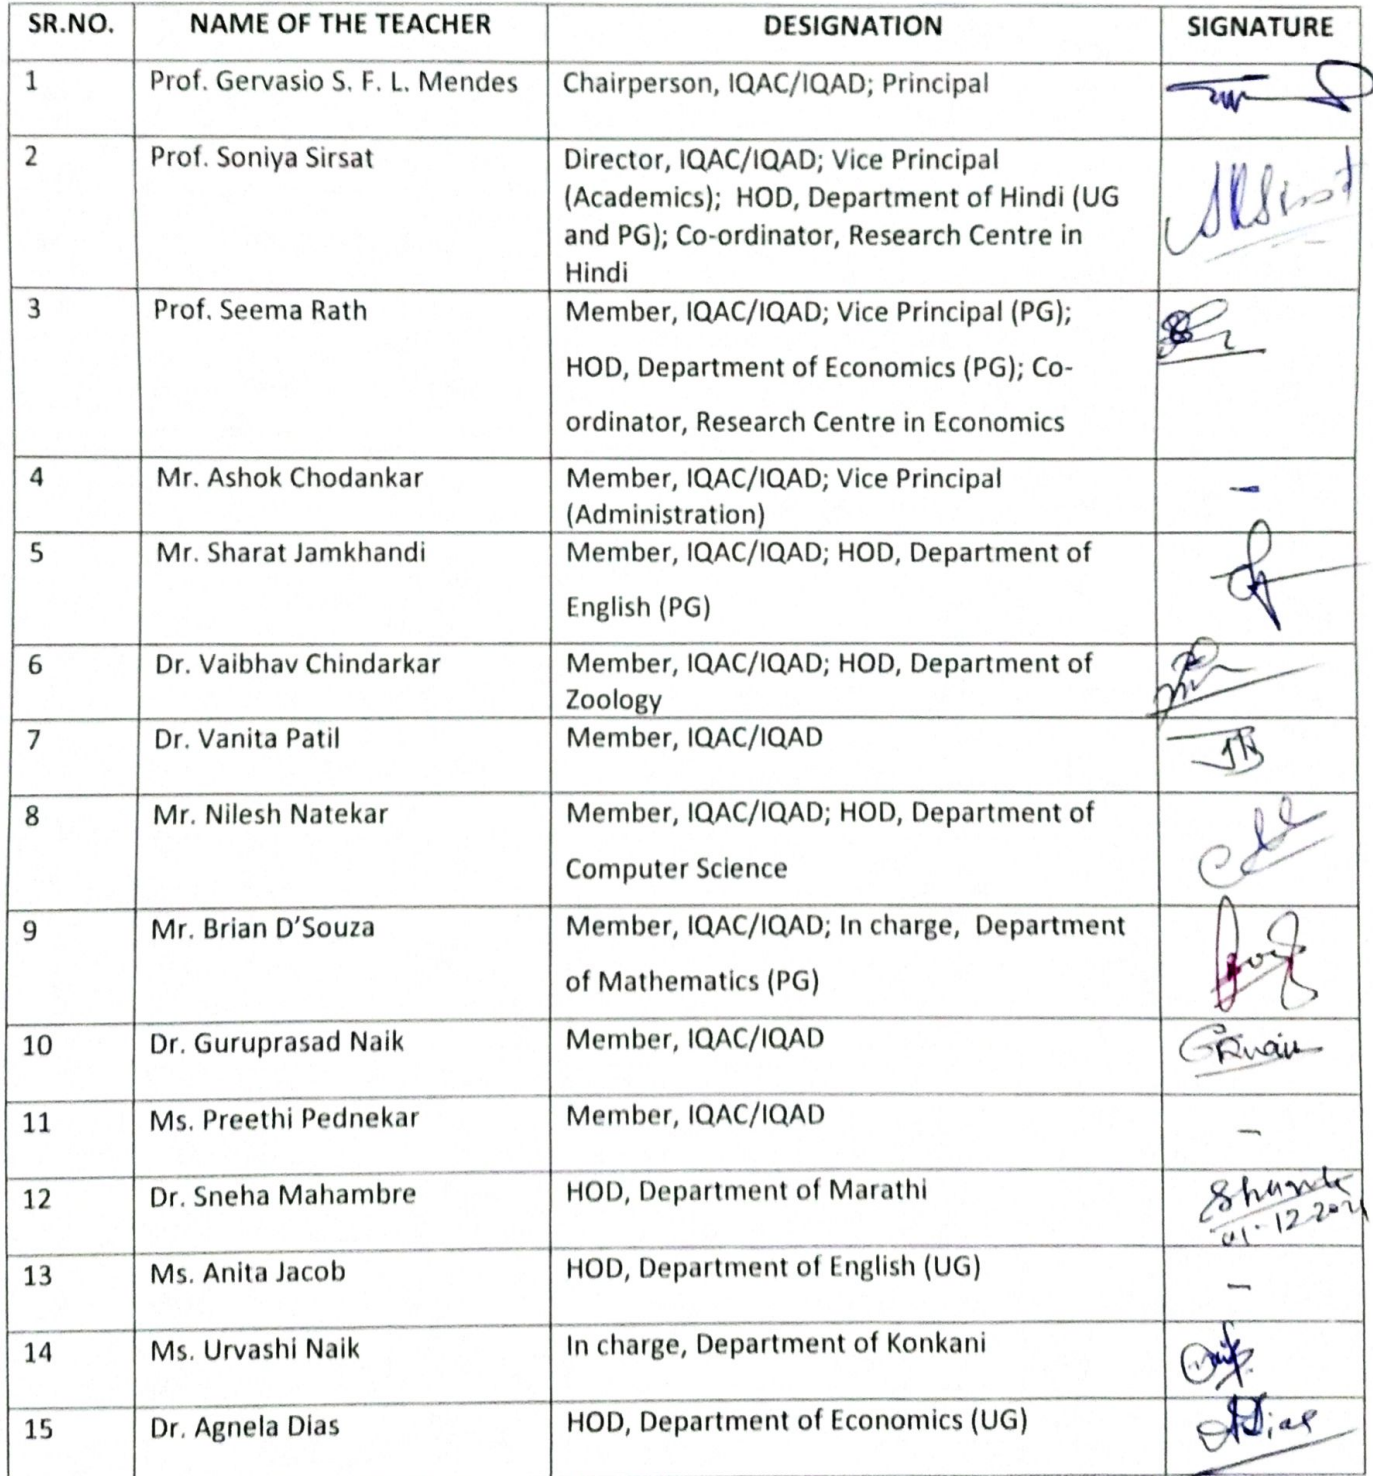 SR.NO. NAME OF THE TEACHER DESIGNATION SIGNATURE
1 Prof. Gervasio S. F. L. Mendes Chairperson, IQAC/IQAD; Principal
2 Prof. Soniya Sirsat Director, IQAC/IQAD; Vice Principal
(Academics); HOD, Department of Hindi (UG
and PG); Co-ordinator, Research Centre in
Hindi
3 Prof. Seema Rath Member, IQAC/IQAD; Vice Principal (PG);
HOD, Department of Economics (PG); Co-
ordinator, Research Centre in Economics
4 Mr. Ashok Chodankar Member, IQAC/IQAD; Vice Principal –
(Administration)
5 Mr. Sharat Jamkhandi Member, IQAC/IQAD; HOD, Department of
English (PG)
6 Dr. Vaibhav Chindarkar Member, IQAC/IQAD; HOD, Department of
Zoology
7 Dr. Vanita Patil Member, IQAC/IQAD
8 Mr. Nilesh Natekar Member, IQAC/IQAD; HOD, Department of
Computer Science
9 Mr. Brian D’Souza Member, IQAC/IQAD; In charge, Department
of Mathematics (PG)
10 Dr. Guruprasad Naik Member, IQAC/IQAD
11 Ms. Preethi Pednekar Member, IQAC/IQAD –
12 Dr. Sneha Mahambre HOD, Department of Marathi
13 Ms. Anita Jacob HOD, Department of English (UG) –
14 Ms. Urvashi Naik In charge, Department of Konkani
15 Dr. Agnela Dias HOD, Department of Economics (UG) ADias